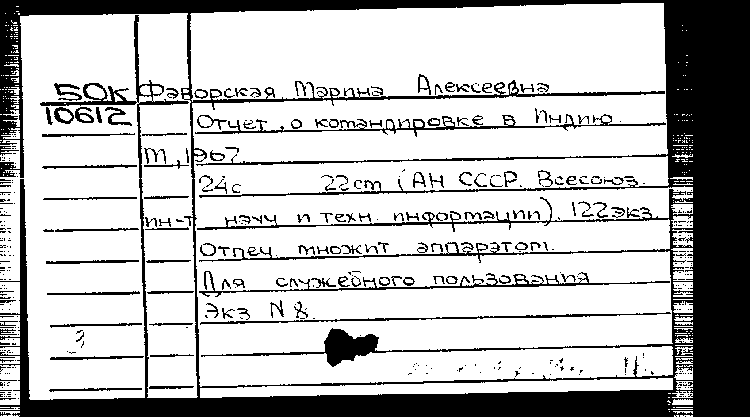 50К Фаворская Марина Алексеевна
10612 Отчет о командировке в Индию
М, 1967
24с 22см (АН СССР. Всесоюз.
ин-т науч и техн. информации). 122экз.
Отпеч множит аппаратом.
Для служебного пользования
Экз N 8.
3